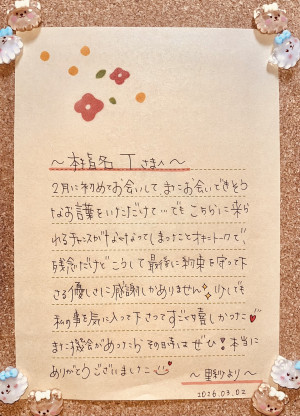 〜本指名 Tさまへ〜
2月に初めてお会いして またお会いできそう
なお言葉をいただけて…でも こちらに来ら
れるチャンスがなくなってしまったことオキニトークで、
残念だけど こうして最後に約束を守って下
さる優しさに感謝しかありません✨少しでも
私の事を気に入って下さってすごく嬉しかったです
また機会があったら その時は ぜひ!本当に
ありがとうございました
より〜
2026.03.02